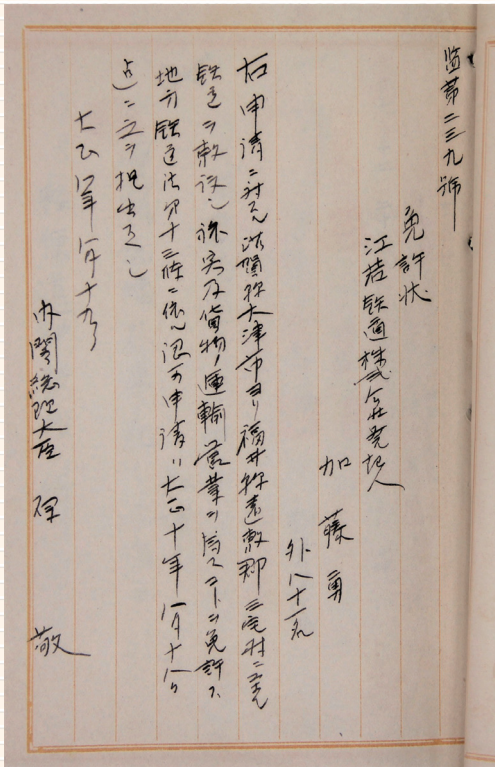 監第二三九號
免許状
江若鉄道株式会社発起人
加藤勇
外八十一名
右申請ニ対スル滋賀縣大津市ヨリ福井縣遠敷郡三宅村ニ至ル
鉄道ヲ敷設シ旅客及貨物ノ運輸営業ヲ為スコトヲ免許ス
地方鉄道法第十三條ニ依ル認可申請ハ大正十年八月十八日
迄ニ之ヲ提出スヘシ
大正 年八月十九日
内閣総理大臣 原 敬